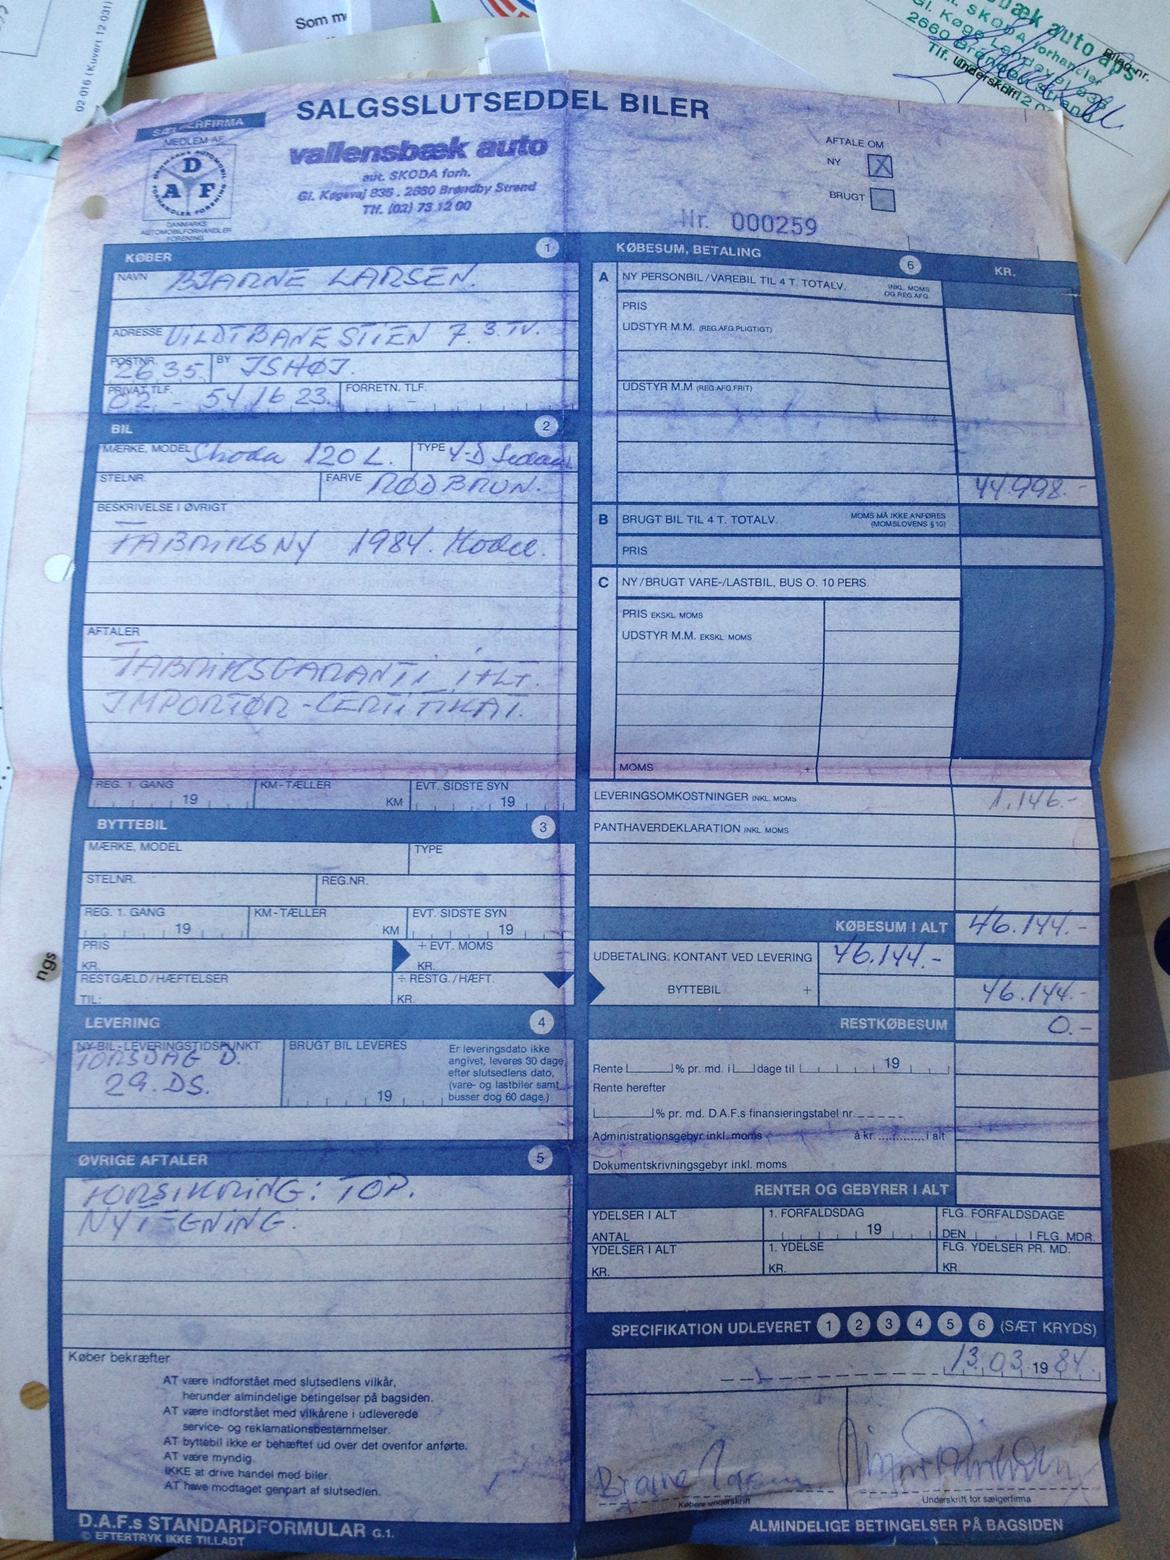 02-016 (Kuvert 12-031)
Som m
bæk auto aps
SKODA forhandler
Gl. Køge Landevej
2660 Brøndby Strand
Tlf.
Bilag nr.
Underskrift
ngs
SALGSSLUTSEDDEL BILER
SÆLGERFIRMA
MEDLEM AF
DANMARKS AUTOMOBIL-
FORHANDLER FORENING
D
A F
DANMARKS
AUTOMOBILFORHANDLER
FORENING
vallensbæk auto
aut. SKODA forh.
Gl. Køgevej 835 . 2660 Brøndby Strand
Tlf. (02) 73 12 00
AFTALE OM
NY X
BRUGT
Nr. 000259
KØBER 1
NAVN BJARNE LARSEN.
ADRESSE VILDTBANESTIEN 7. 3. TV.
POSTNR. 2635. BY ISHØJ.
PRIVAT TLF. 02 - 54 16 23. FORRETN. TLF. -
BIL 2
MÆRKE, MODEL Skoda 120 L. TYPE 4-D Sedan
STELNR. FARVE RØDBRUN.
BESKRIVELSE I ØVRIGT
FABRIKSNY 1984. Model.
AFTALER
FABRIKSGARANTI iFLT.
IMPORTØR-CERTIFIKAT.
REG. 1. GANG 19 KM-TÆLLER KM EVT. SIDSTE SYN 19
BYTTEBIL 3
MÆRKE, MODEL TYPE
STELNR. REG.NR.
REG. 1. GANG 19 KM-TÆLLER KM EVT. SIDSTE SYN 19
PRIS KR. + EVT. MOMS KR.
RESTGÆLD/HÆFTELSER TIL: ÷ RESTG./HÆFT. KR.
LEVERING 4
NY BIL - LEVERINGSTIDSPUNKT
TORSDAG D.
29. DS.
BRUGT BIL LEVERES
19
Er leveringsdato ikke
angivet, leveres 30 dage
efter slutsedlens dato,
(vare- og lastbiler samt
busser dog 60 dage.)
ØVRIGE AFTALER 5
FORSIKRING: TOP.
NYTEGNING.
Køber bekræfter
AT være indforstået med slutsedlens vilkår,
herunder almindelige betingelser på bagsiden.
AT være indforstået med vilkårene i udleverede
service- og reklamationsbestemmelser.
AT byttebil ikke er behæftet ud over det ovenfor anførte.
AT være myndig.
IKKE at drive handel med biler.
AT have modtaget genpart af slutsedlen.
D.A.F.s STANDARDFORMULAR G.1.
© EFTERTRYK IKKE TILLADT
KØBESUM, BETALING 6 KR.
A NY PERSONBIL/VAREBIL TIL 4 T. TOTALV. INKL. MOMS OG REG.AFG.
PRIS
UDSTYR M.M. (REG.AFG.PLIGTIGT)
UDSTYR M.M (REG.AFG.FRIT)
44.998.-
B BRUGT BIL TIL 4 T. TOTALV. MOMS MÅ IKKE ANFØRES (MOMSLOVENS §10)
PRIS
C NY/BRUGT VARE-/LASTBIL, BUS O. 10 PERS.
PRIS EKSKL. MOMS
UDSTYR M.M. EKSKL. MOMS
MOMS +
LEVERINGSOMKOSTNINGER INKL. MOMS 1.146.-
PANTHAVERDEKLARATION INKL. MOMS
KØBESUM I ALT 46.144.-
UDBETALING: KONTANT VED LEVERING 46.144.-
BYTTEBIL + 46.144.-
RESTKØBESUM 0.-
Rente % pr. md. i dage til 19
Rente herefter
% pr. md. D.A.F.s finansieringstabel nr.
Administrationsgebyr inkl. moms à kr. i alt
Dokumentskrivningsgebyr inkl. moms
RENTER OG GEBYRER I ALT
YDELSER I ALT ANTAL 1. FORFALDSDAG 19 FLG. FORFALDSDAGE DEN I FLG. MDR.
YDELSER I ALT KR. 1. YDELSE KR. FLG. YDELSER PR. MD. KR.
SPECIFIKATION UDLEVERET 1 2 3 4 5 6 (SÆT KRYDS)
13.03.1984.
Bjarne Larsen
Købers underskrift
Underskrift for sælgerfirma
ALMINDELIGE BETINGELSER PÅ BAGSIDEN